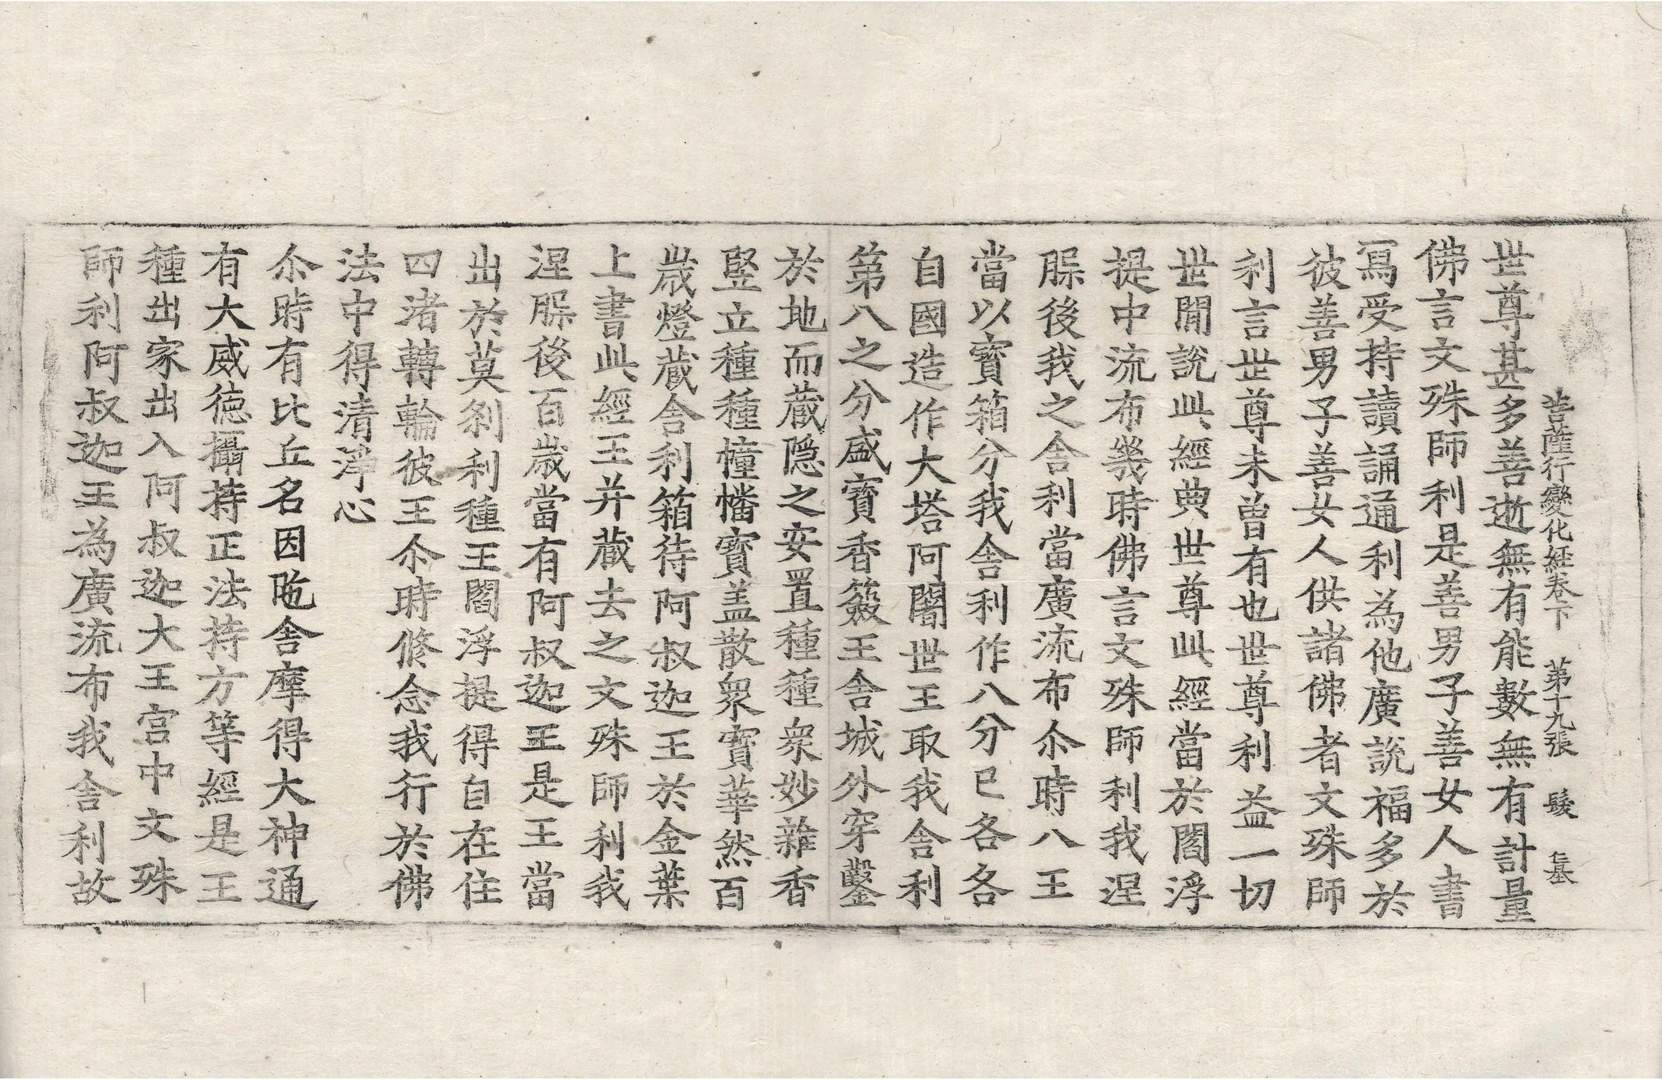 菩薩行變化經卷下　第十九張　髮
世尊甚多善逝無有能數無有計量
佛言文殊師利是善男子善女人書
寫受持讀誦通利為他廣說福多於
彼善男子善女人供諸佛者文殊師
利言世尊未曾有也世尊利益一切
世間說此經典世尊此經當於閻浮
提中流布幾時佛言文殊師利我涅
𣵀後我之舍利當廣流布尒時八王
當以寶箱分我舍利作八分已各各
自國造作大塔阿闍世王取我舍利
第八之分盛寶香篋王舍城外穿鑿
於地而藏隱之安置種種衆妙雜香
竪立種種幢幡寶盖散衆寶華然百
歲燈藏舍利箱待阿叔迦王於金葉
上書此經王并藏去之文殊師利我
涅𣵀後百歲當有阿叔迦王是王當
出於莫剎利種王閻浮提得自在住
四渚轉輪彼王尒時俻念我行於佛
法中得清淨心
尒時有比丘名因陁舍摩得大神通
有大威德攝持正法持方等經是王
種出家出入阿叔迦大王宮中文殊
師利阿叔迦王為廣流布我舍利故